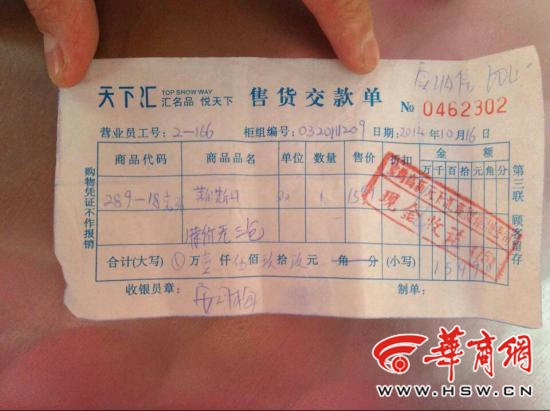 天下汇 TOP SHOW WAY 汇名品 悦天下 售货交款单 № 0462302
营业员工号: 2-166 柜组编号: 0320111209 日期: 2014年10月16日
商品代码 商品品名 单位 数量 售价 折扣 金额
万 千 百 拾 元 角 分
289-18 双 1
特价无三包
现金收讫
合计(大写) 万壹仟伍佰玖拾玖元 角 分 (小写) 1599
收银员章: 制单:
购物凭证不作报销
第三联 顾客留存
华商网
WWW.HSW.CN